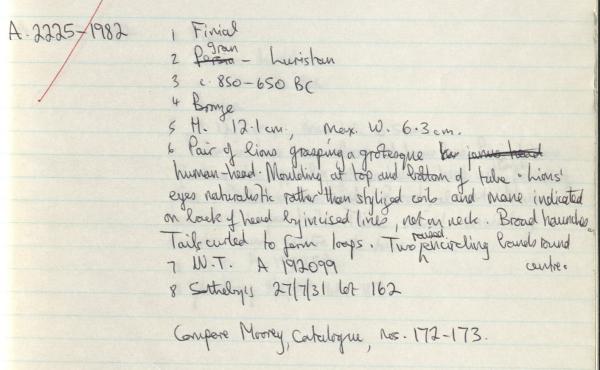 A.2225-1982
1 Finial
2 Iran - Luristan
3 c. 850-650 BC
4 Bronze
5 H. 12.1cm, Max. W. 6.3cm.
6 Pair of lions grasping a grotesque janus head
human-head. Moulding at top and bottom of tube. Lions'
eyes naturalistic rather than stylized coils and mane indicated
on back of head by incised lines, not on neck. Broad haunches.
Tails curled to form loops. Two raised encircling bands round
centre.
7 W.T. A 192099
8 Sotheby's 27/7/31 lot 162
Compare Moorey, Catalogue, nos. 172-173.